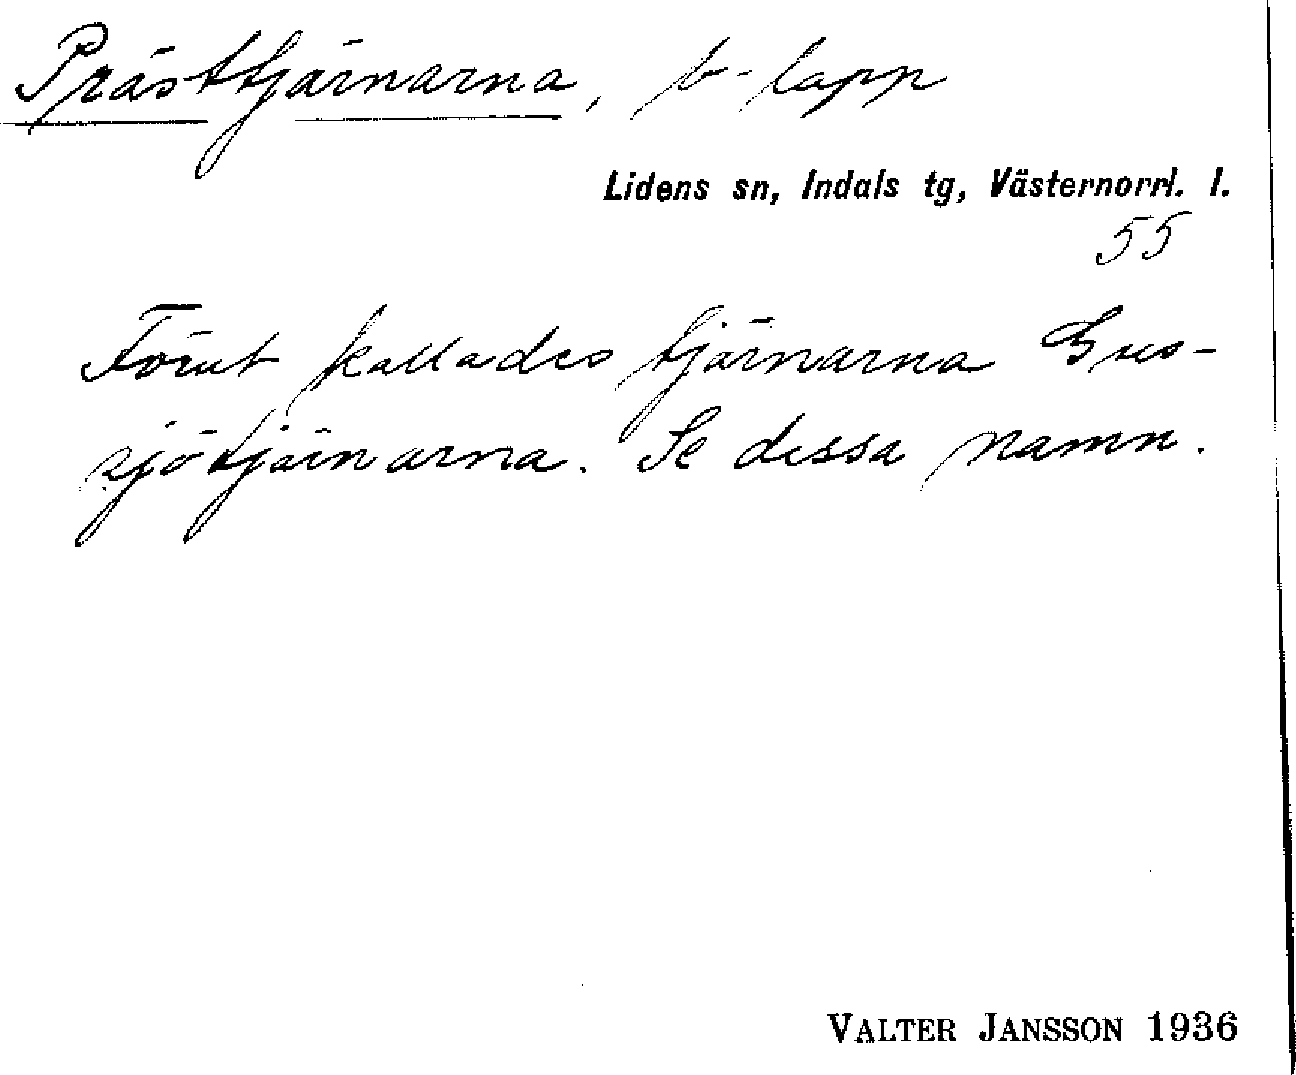 Prästtjärnarna, b-lapp
Lidens sn, Indals tg, Västernorrl. l.
55
Förut kallades tjärnarna Gus-
sjötjärnarna. Se dessa namn.
VALTER JANSSON 1936